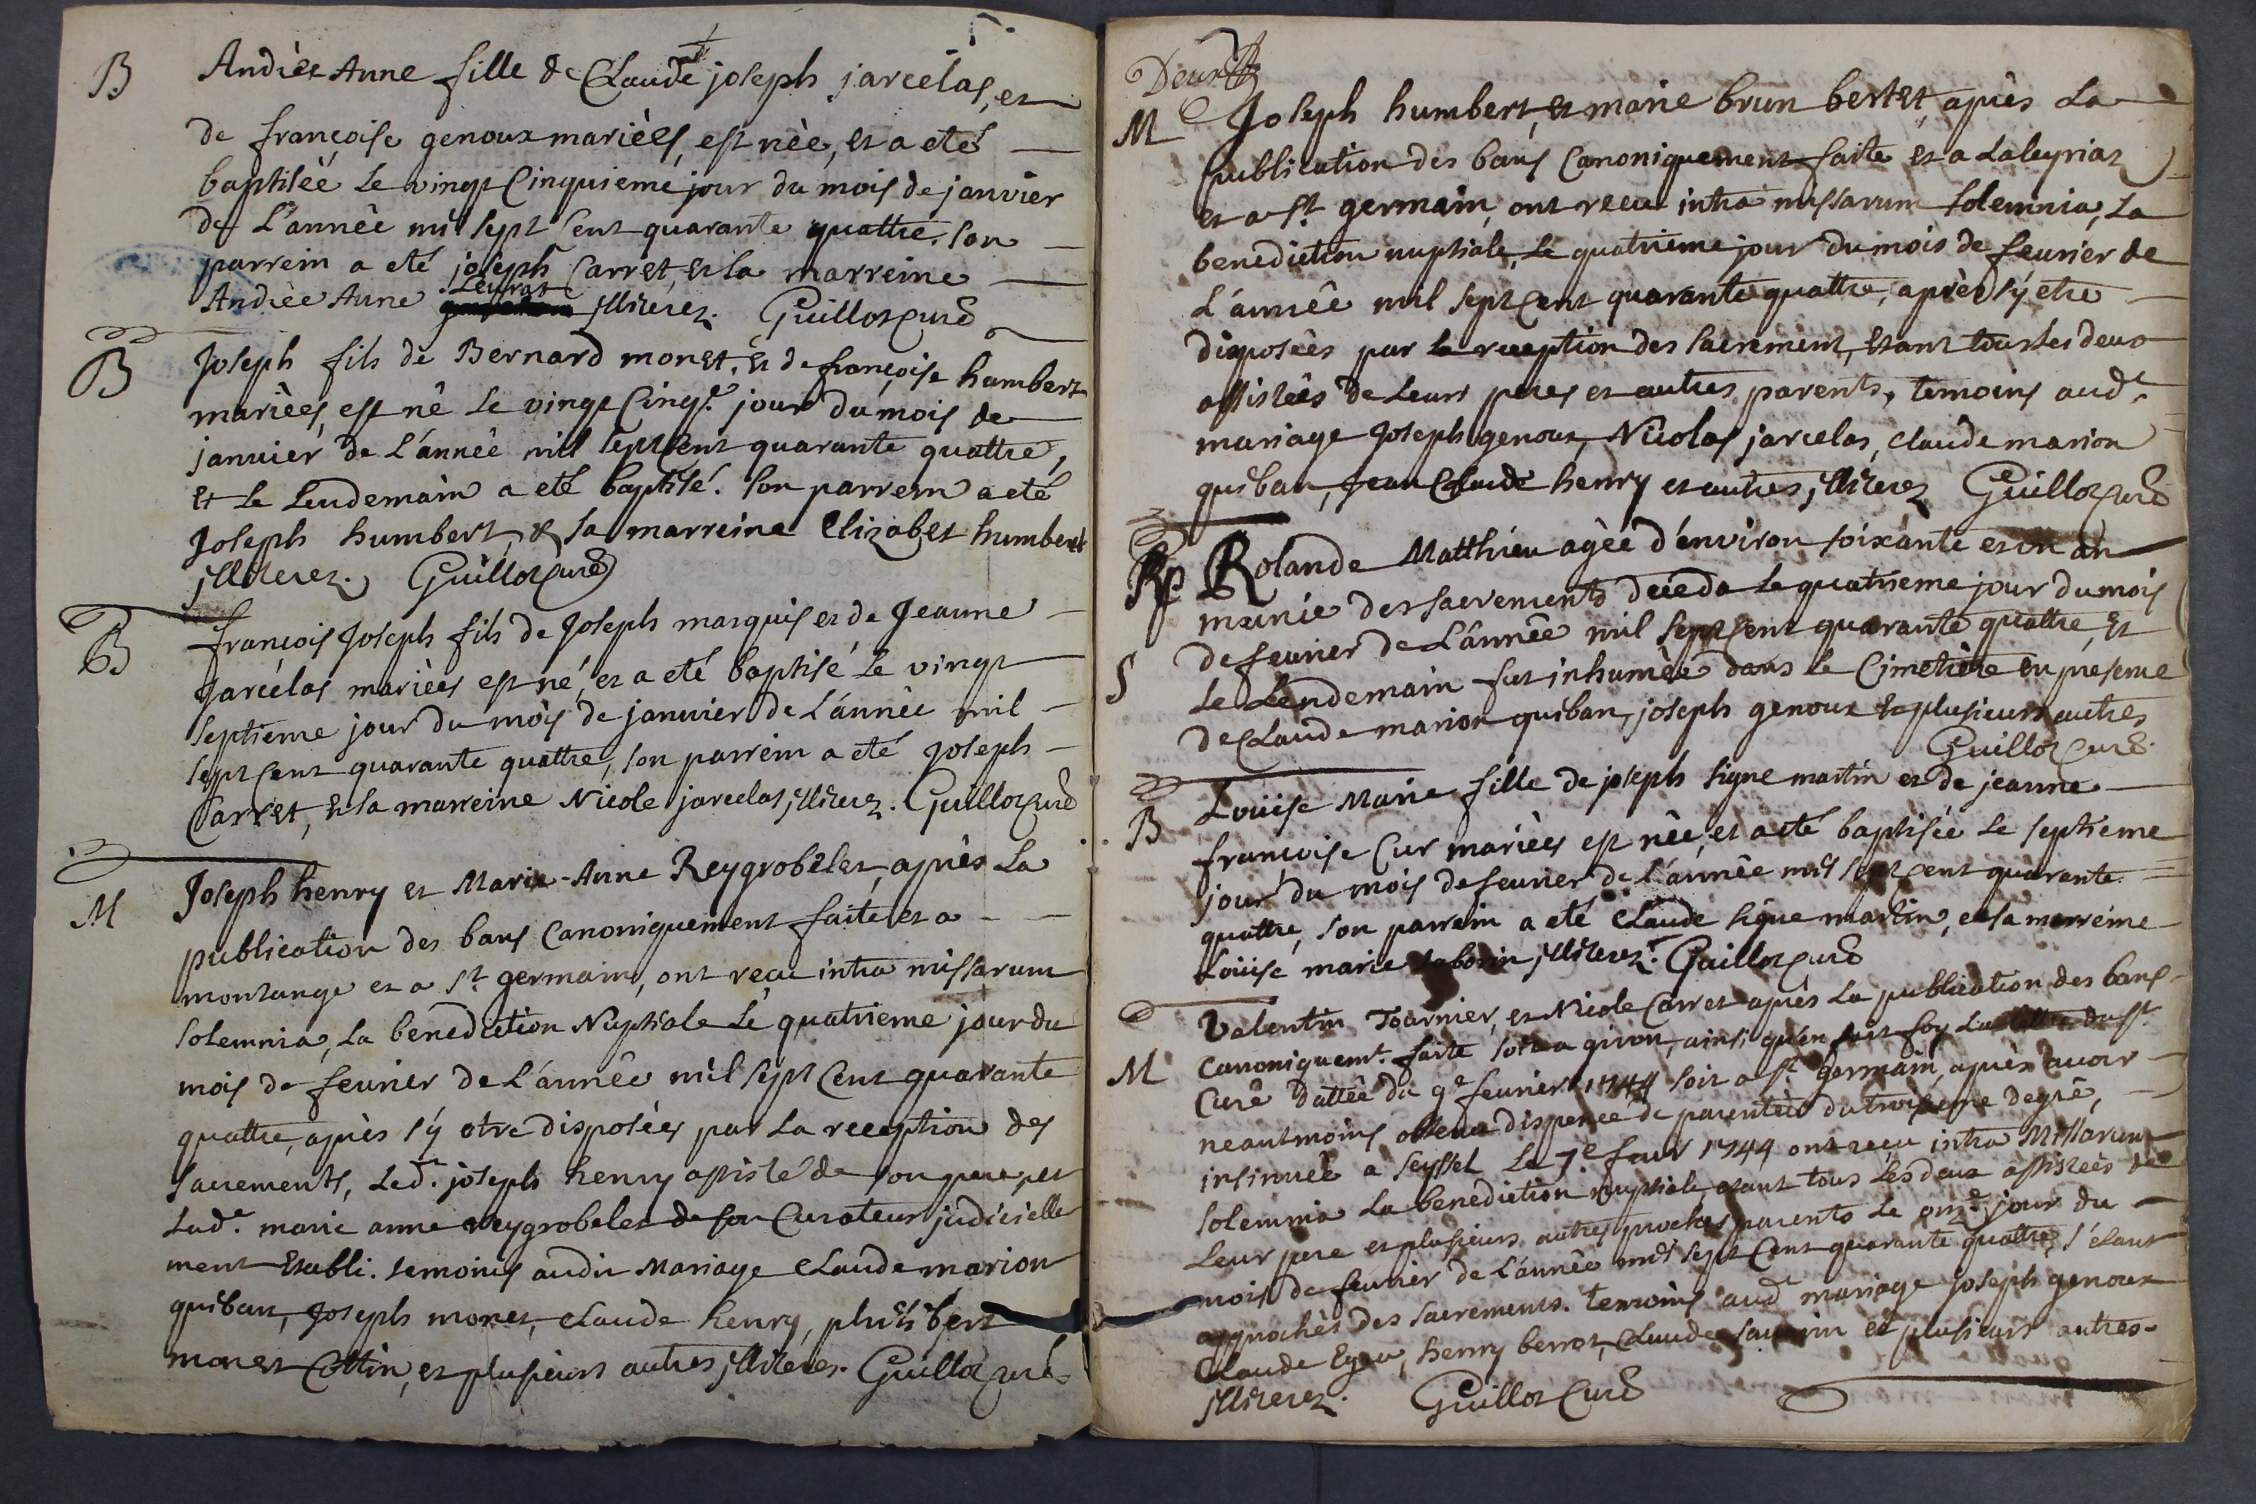 B
Andièe Anne fille de Claude joseph jarcelas, et
de françoise genoux mariéés, est nèè, et a eté
baptiséé le vingt Cinquieme jour du mois de janvier
de L'année mil sept Cent quarante quattre. son
parrein a eté joseph Carret, et la marreine
Leyrat
Andièe Anne illiterez. Guillot curé
B
Joseph fils de Bernard monet, et de françoise humbert
mariéés, est né le vingt Cinq.e jour du mois de
janvier de L'année mil sept Cent quarante quattre,
Et le Lendemain a eté baptisé. son parrein a eté
Joseph humbert, & sa marreine Elizabet humbert
illiterez. Guillot curé
B
françois Joseph fils de Joseph marquis et de Jeanne
jarcélas mariéés est né, et a eté baptisé le vingt
septieme jour du mois de janvier de L'année mil
sept Cent quarante quattre, son parrein a eté joseph
Carret, et sa marreine Nicole jarcelas, illiterez. Guillot curé
M
Joseph henry et Marie-Anne Reygrobelet, après La
publication des bans Canoniquement faite et a
montange et a St germain, ont reçu intra missarum
solemnia, la bénédiction Nuptiale Le quatrieme jour du
mois de fevrier de L'année mil sept Cent quarante
quattre, après s'y etre disposéés par La reception des
sacrements, Led.t joseph henry assisté de son pere, et
Lad.e marie anne reygrobelet de son Curateur judicielle
ment Etabli. temoins audit Mariage Claude marion
quiban, Joseph monet, Claude henry, philibert
monet Cottin, et plusieurs autres illiteres. Guillot curé
Deux
M
Joseph humbert, et marie brun bertet, après La
publication des bans Canoniquement faite et a Laleyriat
et a St germain, ont reçu intra missarum solemnia, La
benediction nuptiale, Le quatrieme jour du mois de fevrier de
L'année mil sept Cent quarante quattre, après s'y etre
disposéés par la reception des sacrement, Etant tous les deux
assistéés de Leurs peres et autres parents, temoins aud.t
mariage Joseph genoux, Nicolas jarcelas, Claude marion
quiban, Jean Claude henry et autres, illiterez Guillot curé
Rp
S
Rolande Matthieu agéé d'environ soixante et un an
munie des sacrements deceda le quatrieme jour du mois
de fevrier de L'année mil sept Cent quarante quattre, Et
Le Lendemain fut inhuméé dans le Cimetiere en présence
de Claude marion quiban, joseph genoux & plusieurs autres
Guillot curé.
B
Loüise Marie fille de joseph signe martin et de jeanne
françoise Cur mariéés est néé, et a eté baptisée le septieme
jour du mois de fevrier de L'année mil sept cent quarante
quattre, son parrein a eté Claude signe martin, et sa marreine
Loüise marie illiterez. Guillot curé
M
Valentin Tournier, et Nicole Carret après La publication des bans
Canoniquem.t faite soit a giron, ainsi qu'en fait foy du St
Curé dattée du 9e fevrier 1744 soit a St germain, après avoir
neantmoins obtenu dispence de parentéé du troisieme degré,
insinuéé a Seyssel Le 7e fevr 1744 ont reçu intra Missarum
solemnia La benediction nuptiale etant tous Les deux assistéés de
Leur pere et plusieurs autres proches parents Le onz.e jour du
mois de fevrier de L'année mil sept Cent quarante quattre, s'étant
approchés des sacrements. temoins aud.t mariage Joseph genoux
Claude Egeu, henry berrot, Claude et plusieurs autres
illiterez. Guillot Curé